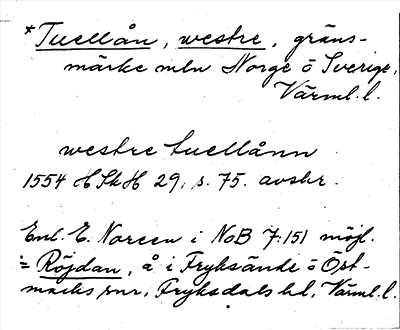 *Tuellån, westre, gräns-
märke mln Norge ö Sverige,
Värml. l.
westre tuellånn
1554 HSkH 29, s. 75. avskr.
Enl. E. Noreen i NoB 7:151 möjl.
= Röjdan, å i Fryksände ö Öst-
marks snr, Fryksdals hd, Värml. l.